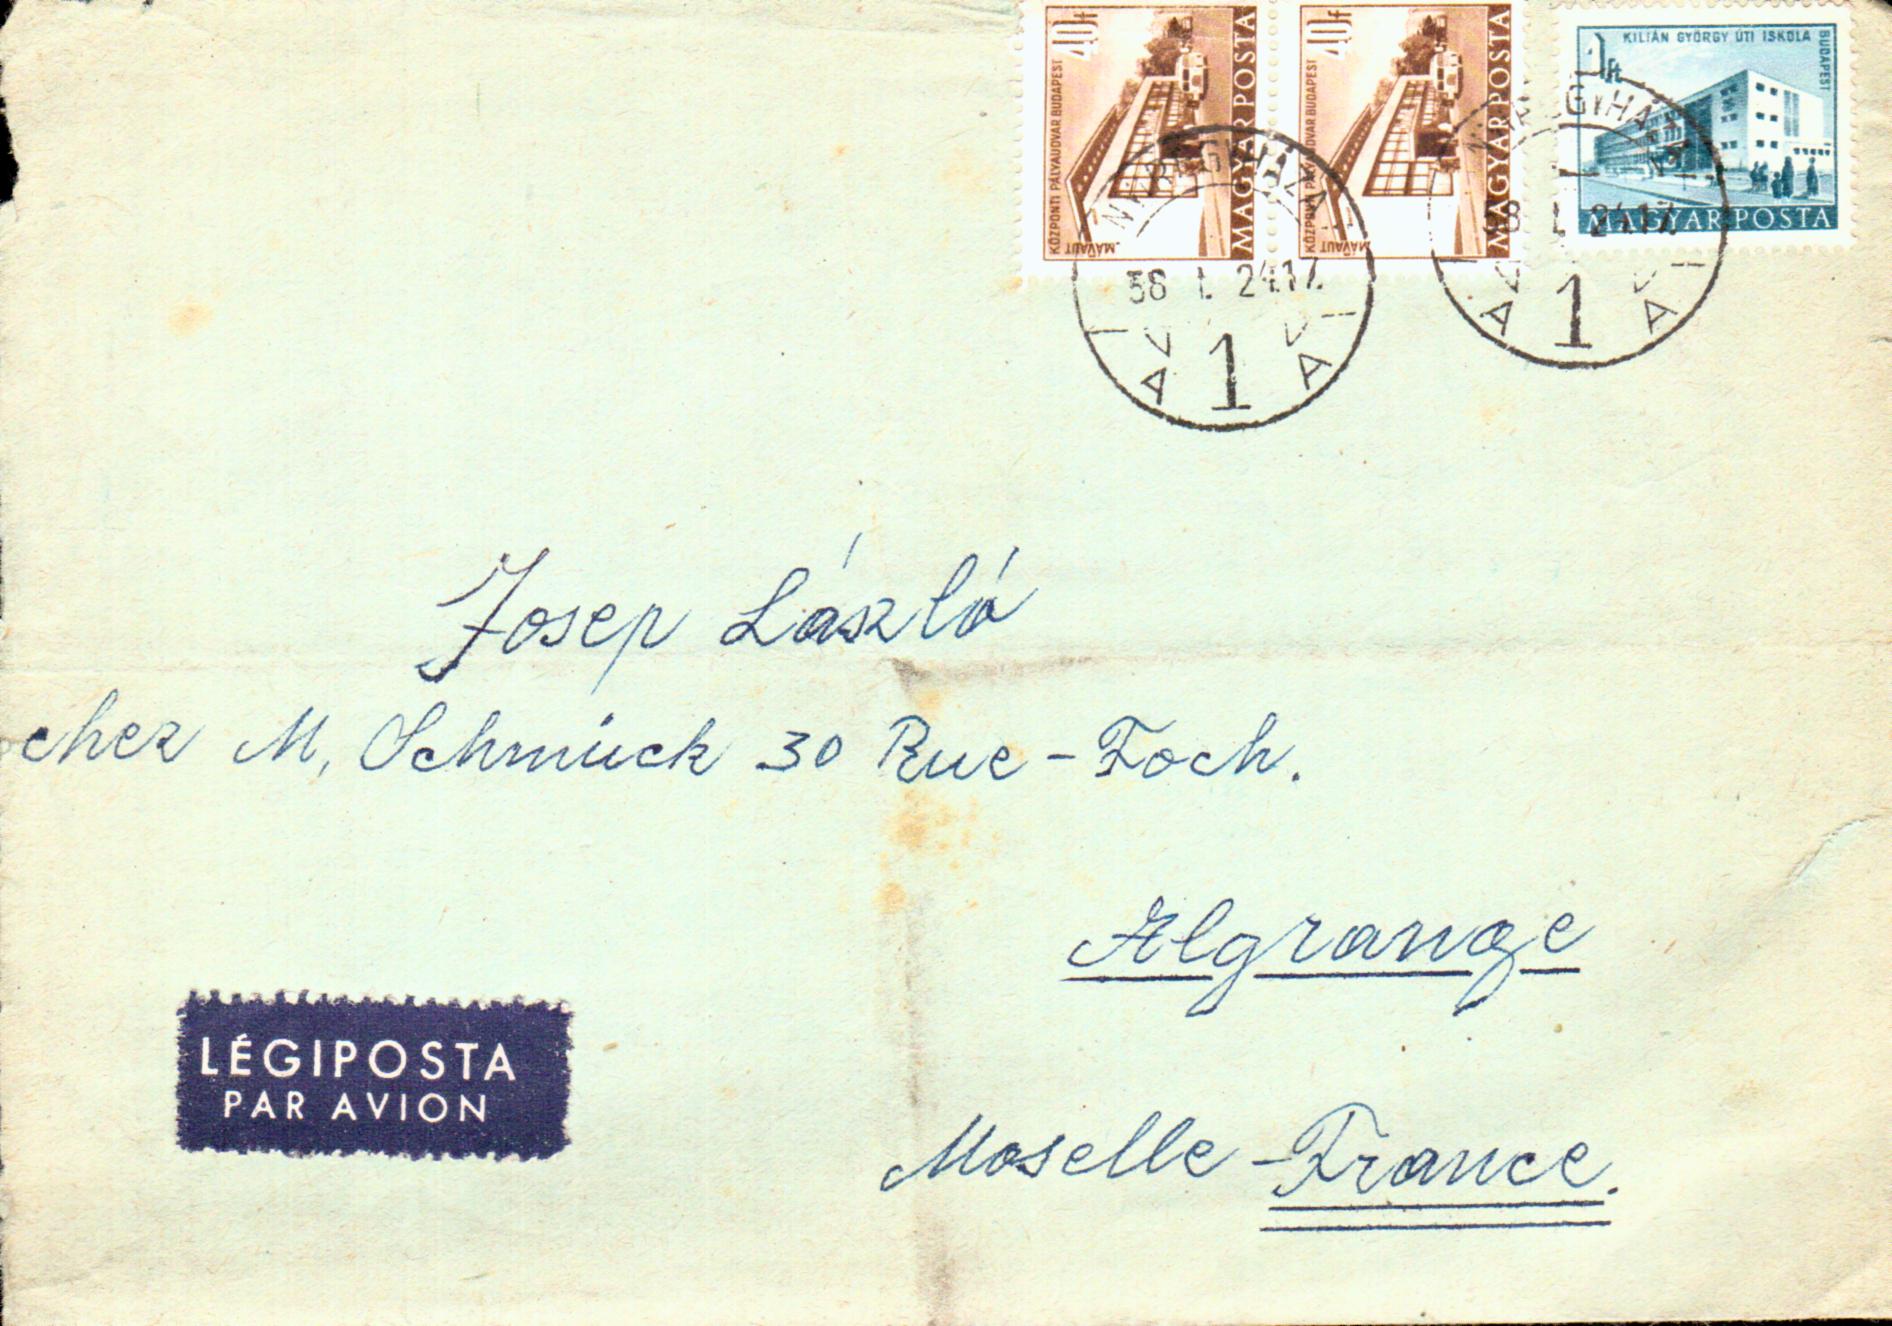 40f
KÖZPONTI PÁLYAUDVAR BUDAPEST
„MÁVAUT”
MAGYAR POSTA
40f
KÖZPONTI PÁLYAUDVAR BUDAPEST
„MÁVAUT”
MAGYAR POSTA
1 Ft
KILIÁN GYÖRGY ÚTI ISKOLA
BUDAPEST
MAGYAR POSTA
NYÍREGYHÁZA
58 I. 24.17.
1
NYÍREGYHÁZA
58 I. 24.17.
1
Josep László
chez M, Schmück 30 Rue-Foch.
Algrange
LÉGIPOSTA
PAR AVION
Moselle - France.